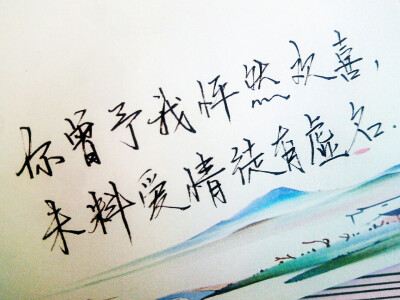 你曾予我怦然欢喜,
未料爱情徒有虚名.